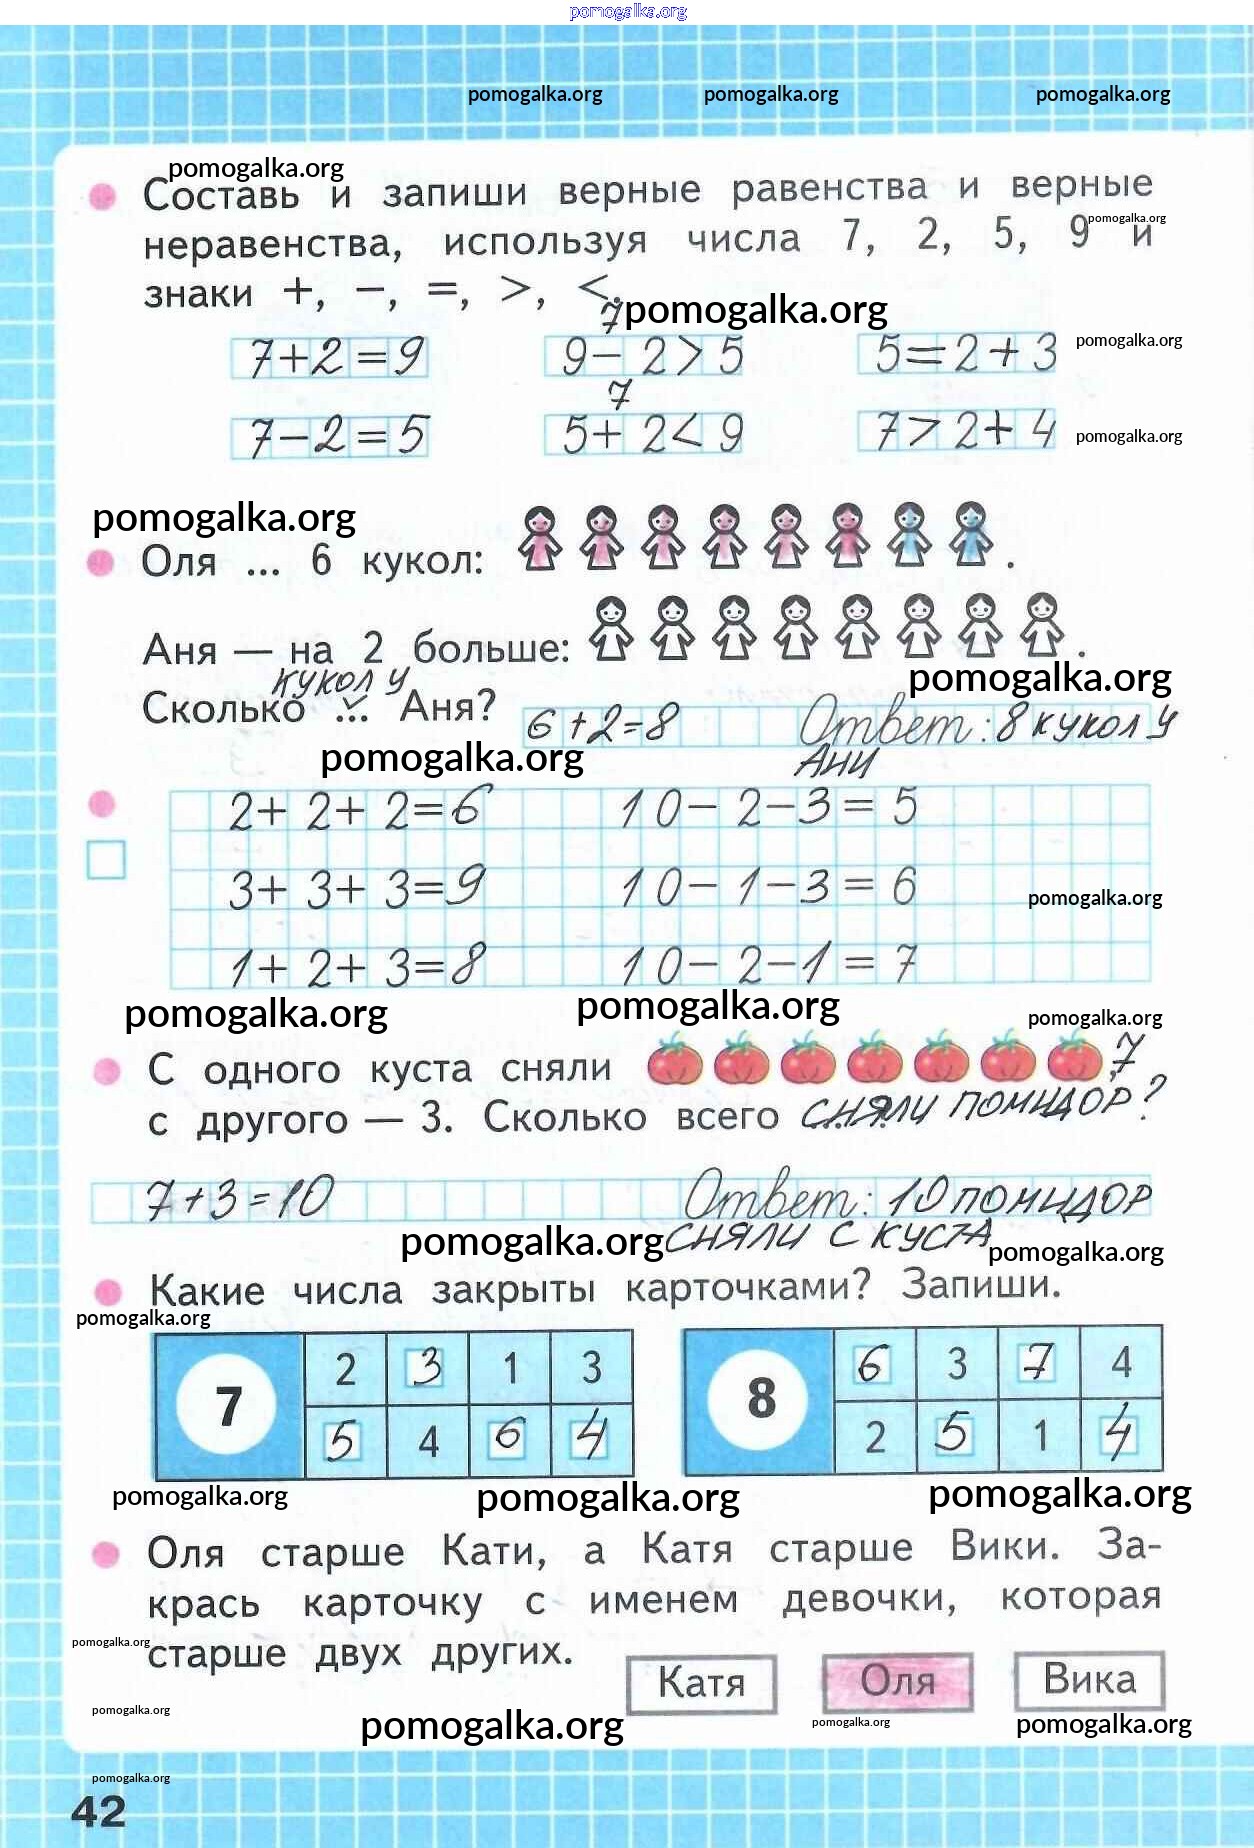 pomogalka.org
pomogalka.org pomogalka.org pomogalka.org
pomogalka.org
Составь и запиши верные равенства и верные
pomogalka.org
неравенства, используя числа 7, 2, 5, 9 и
знаки +, −, =, >, <.
7 pomogalka.org
7+2=9 9−2>5 5=2+3 pomogalka.org
7
7−2=5 5+2<9 7>2+4 pomogalka.org
pomogalka.org
Оля ... 6 кукол: .
Аня — на 2 больше: .
кукол у pomogalka.org
Сколько ... Аня? 6+2=8 Ответ: 8 кукол у
pomogalka.org Ани
2+2+2=6 10−2−3=5
3+3+3=9 10−1−3=6
pomogalka.org
1+2+3=8 10−2−1=7
pomogalka.org pomogalka.org pomogalka.org
С одного куста сняли , 7
с другого — 3. Сколько всего сняли помидор?
7+3=10 Ответ: 10 помидор
pomogalka.org сняли с куста pomogalka.org
Какие числа закрыты карточками? Запиши.
pomogalka.org
7 2 3 1 3 8 6 3 7 4
5 4 6 4 2 5 1 4
pomogalka.org pomogalka.org pomogalka.org
Оля старше Кати, а Катя старше Вики. За-
крась карточку с именем девочки, которая
pomogalka.org
старше двух других.
Катя Оля Вика
pomogalka.org pomogalka.org pomogalka.org pomogalka.org
pomogalka.org
42